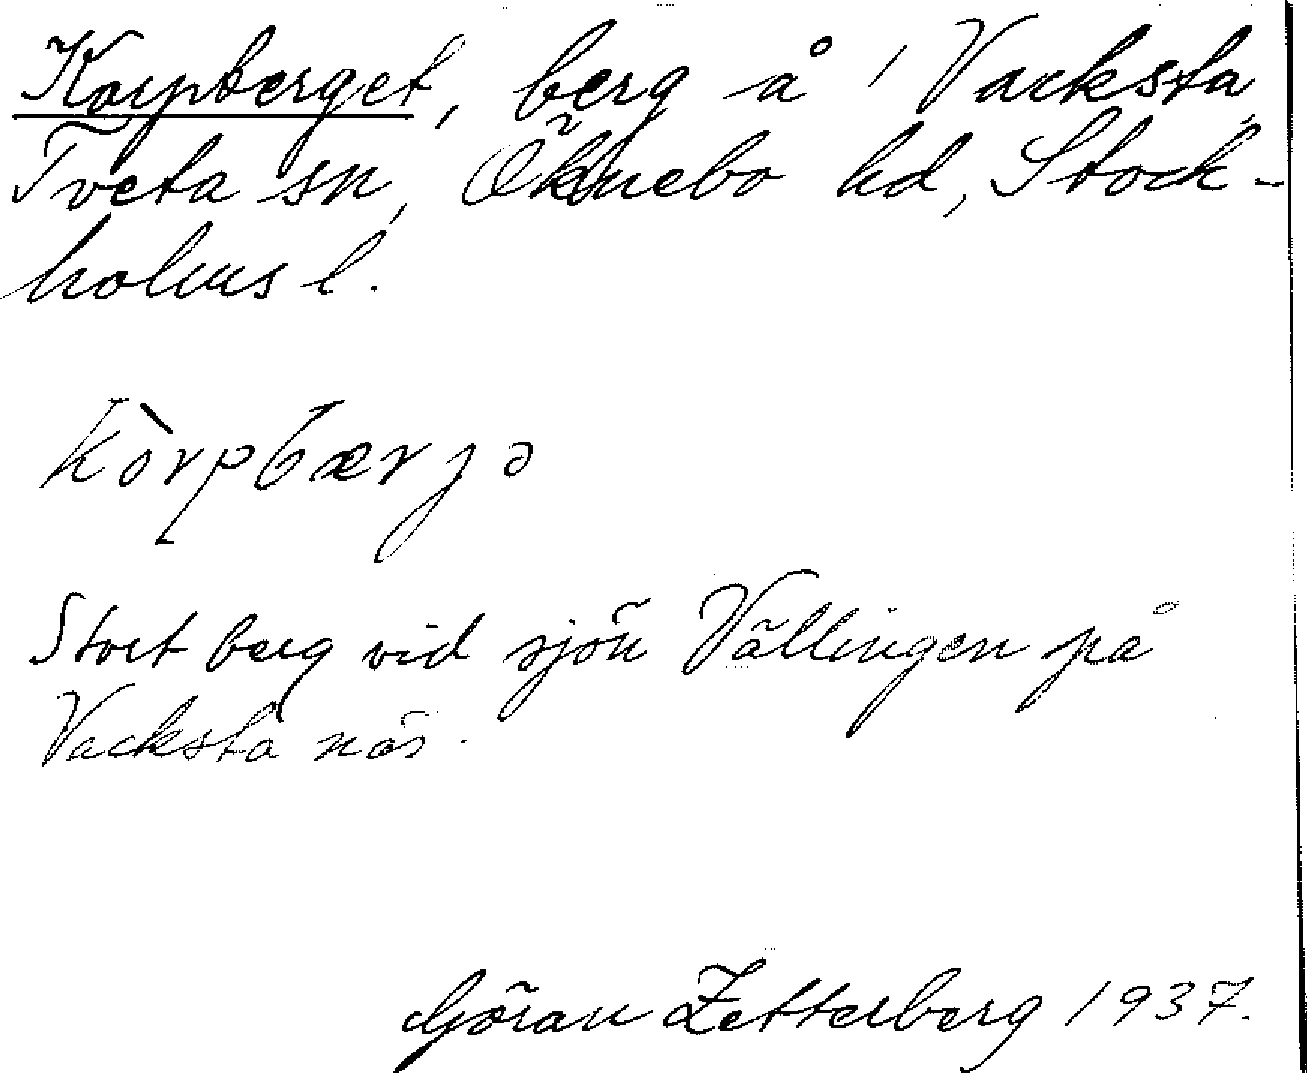 Korpberget, berg å ' Vacksta,
Tveta sn, Öknebo hd, Stock-
holms l.
kòrpbærjə
Stort berg vid sjön Vällingen på
Vacksta näs.
Göran Zetterberg 1937.